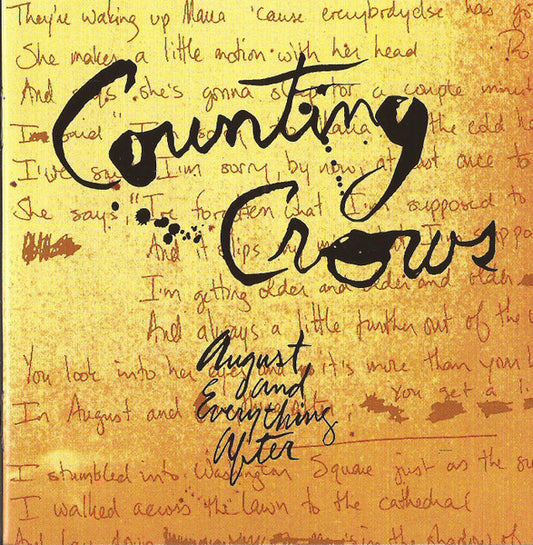 They're waking up Maria 'cause everybody else has go
She makes a little motion with her head
And says she's gonna sleep for a couple minut
Counting
I said I'm Maria the cold
I've I'm sorry, by now, at once to
She says, "I've forgotten what I'm supposed to
Crows
And it slips my
I'm getting older and older and older
And always a little further out of the
August
and
Everything
After
You look into her eyes and it's more than your
In August and
You get a
I stumbled into Washington Square just as the su
I walked across the lawn to the cathedral
And lay down in the shadow of